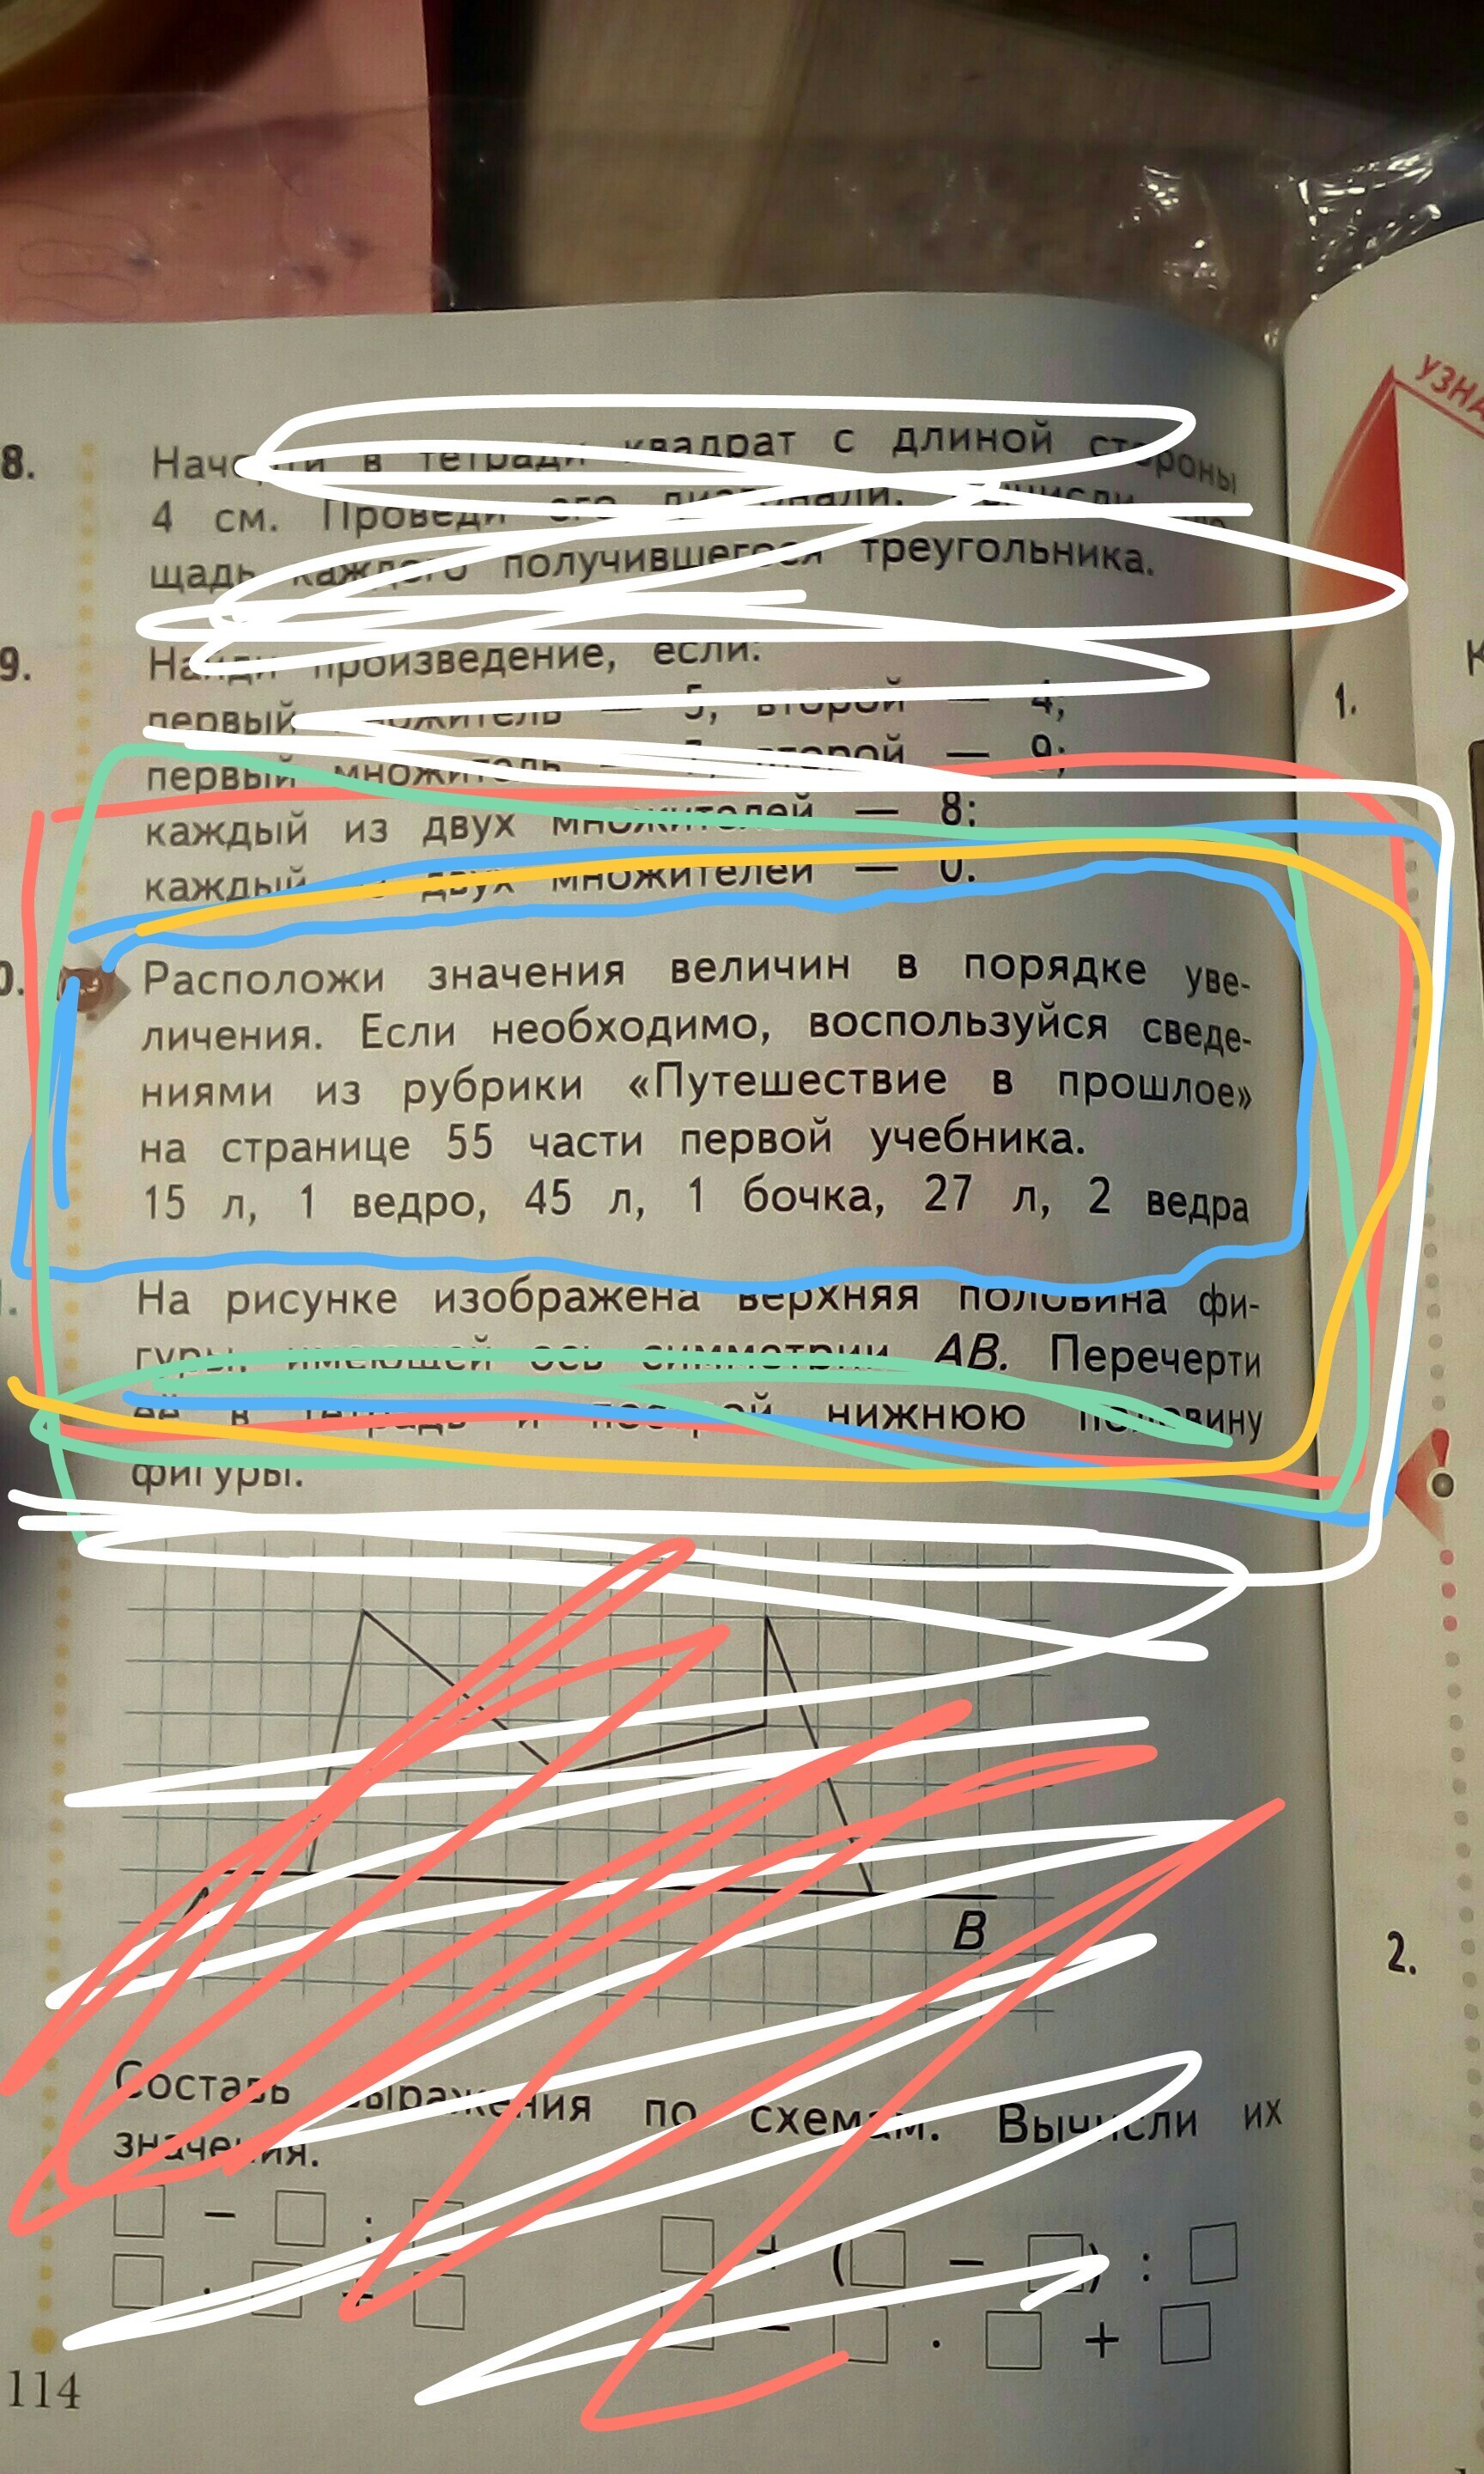 8. квадрат с длиной стороны
4 см. Проведи его диагонали.
щадь каждого получившегося треугольника.
9. Найди произведение, если:
первый множитель — 5, второй — 4;
первый множитель — второй — 9;
каждый из двух множителей — 8;
каждый из двух множителей — 0.
Расположи значения величин в порядке уве-
личения. Если необходимо, воспользуйся сведе-
ниями из рубрики «Путешествие в прошлое»
на странице 55 части первой учебника.
15 л, 1 ведро, 45 л, 1 бочка, 27 л, 2 ведра
На рисунке изображена верхняя половина фи-
гуры, имеющей ось симметрии АВ. Перечерти
её в тетрадь и построй нижнюю половину
фигуры.
В
Составь выражения по схемам. Вычисли их
значения.
114
УЗНА
1.
2.